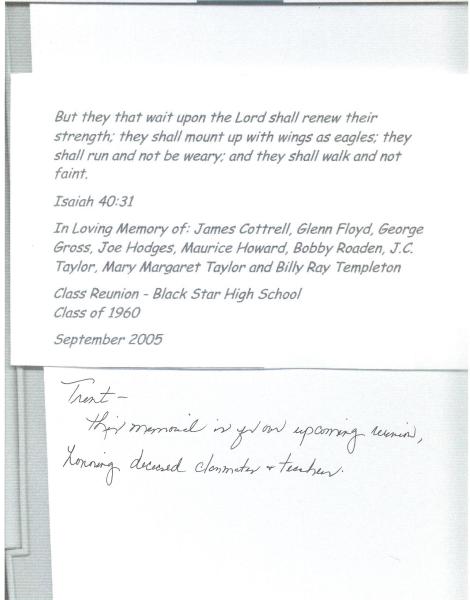 But they that wait upon the Lord shall renew their
strength; they shall mount up with wings as eagles; they
shall run and not be weary; and they shall walk and not
faint.
Isaiah 40:31
In Loving Memory of: James Cottrell, Glenn Floyd, George
Gross, Joe Hodges, Maurice Howard, Bobby Roaden, J.C.
Taylor, Mary Margaret Taylor and Billy Ray Templeton
Class Reunion - Black Star High School
Class of 1960
September 2005
Trent -
This memorial is for our upcoming reunion,
honoring deceased classmates + teachers.